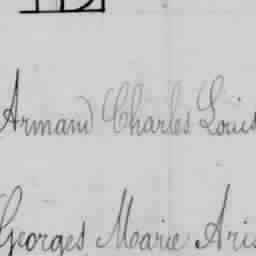 Armand Charles Louis
Georges Marie Aris